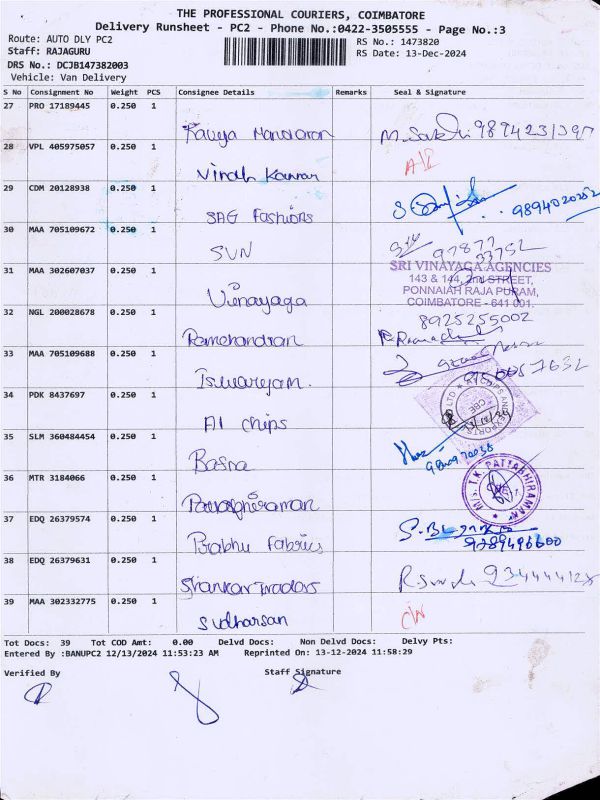 THE PROFESSIONAL COURIERS, COIMBATORE
Delivery Runsheet - PC2 - Phone No.:0422-3505555 - Page No.:3
Route: AUTO DLY PC2
RS No.: 1473820
Staff: RAJAGURU
RS Date: 13-Dec-2024
DRS No.: DCJB147382003
Vehicle: Van Delivery
S No Consignment No Weight PCS Consignee Details Remarks Seal & Signature
27 PRO 17189445 0.250 1
28 VPL 405975057 0.250 1
29 CDM 20128938 0.250 1 SAG Fashions 9894020252
30 MAA 705109672 0.250 1 SVN
SRI VINAYAGA AGENCIES
143 & 144, 2nd STREET,
PONNAIAH RAJA PURAM,
COIMBATORE - 641 001.
31 MAA 302607037 0.250 1 Vinayaga
8925255002
32 NGL 200028678 0.250 1 Ramchandran
33 MAA 705109688 0.250 1
34 PDK 8437697 0.250 1 A1 chips
35 SLM 360484454 0.250 1 Basna
36 MTR 3184066 0.250 1
M/s. T.K. PATTABHIRAMAN
37 EDQ 26379574 0.250 1 Prabhu Fabrics
9789496600
38 EDQ 26379631 0.250 1 Shankar Traders
39 MAA 302332775 0.250 1 Sudharsan
Tot Docs: 39 Tot COD Amt: 0.00 Delvd Docs: Non Delvd Docs: Delvy Pts:
Entered By :BANUPC2 12/13/2024 11:53:23 AM Reprinted On: 13-12-2024 11:58:29
Verified By Staff Signature